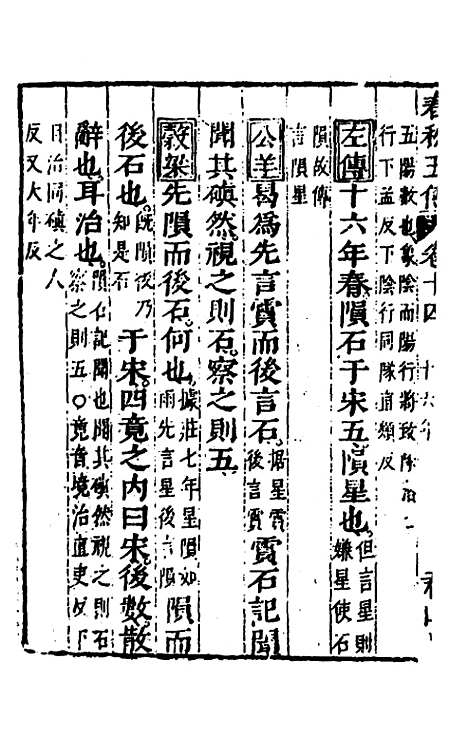 春秋五傳 卷十四 十六年
五陽數也象陰而陽行將致隊落
行下孟反下陰行同隊直類反
左傳十六年春隕石于宋五隕星也但言星則嫌星使石
隕故傳言隕星
公羊曷爲先言霣而後言石据星霣後言霣霣石記聞
聞其磌然視之則石察之則五
穀梁先隕而後石何也據莊七年星隕如雨先言星後言隕隕而
後石也既隕後乃知是石于宋四竟之內曰宋後數散
辭也耳治也隕石記聞也聞其磌然視之則石察之則五○竟音境治直吏反下
目治同磌之人
反又大年反